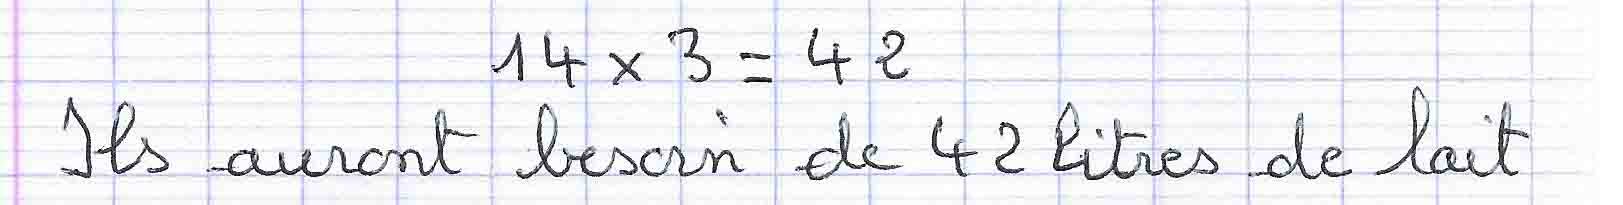 14 x 3 = 42
Ils auront besoin de 42 litres de lait